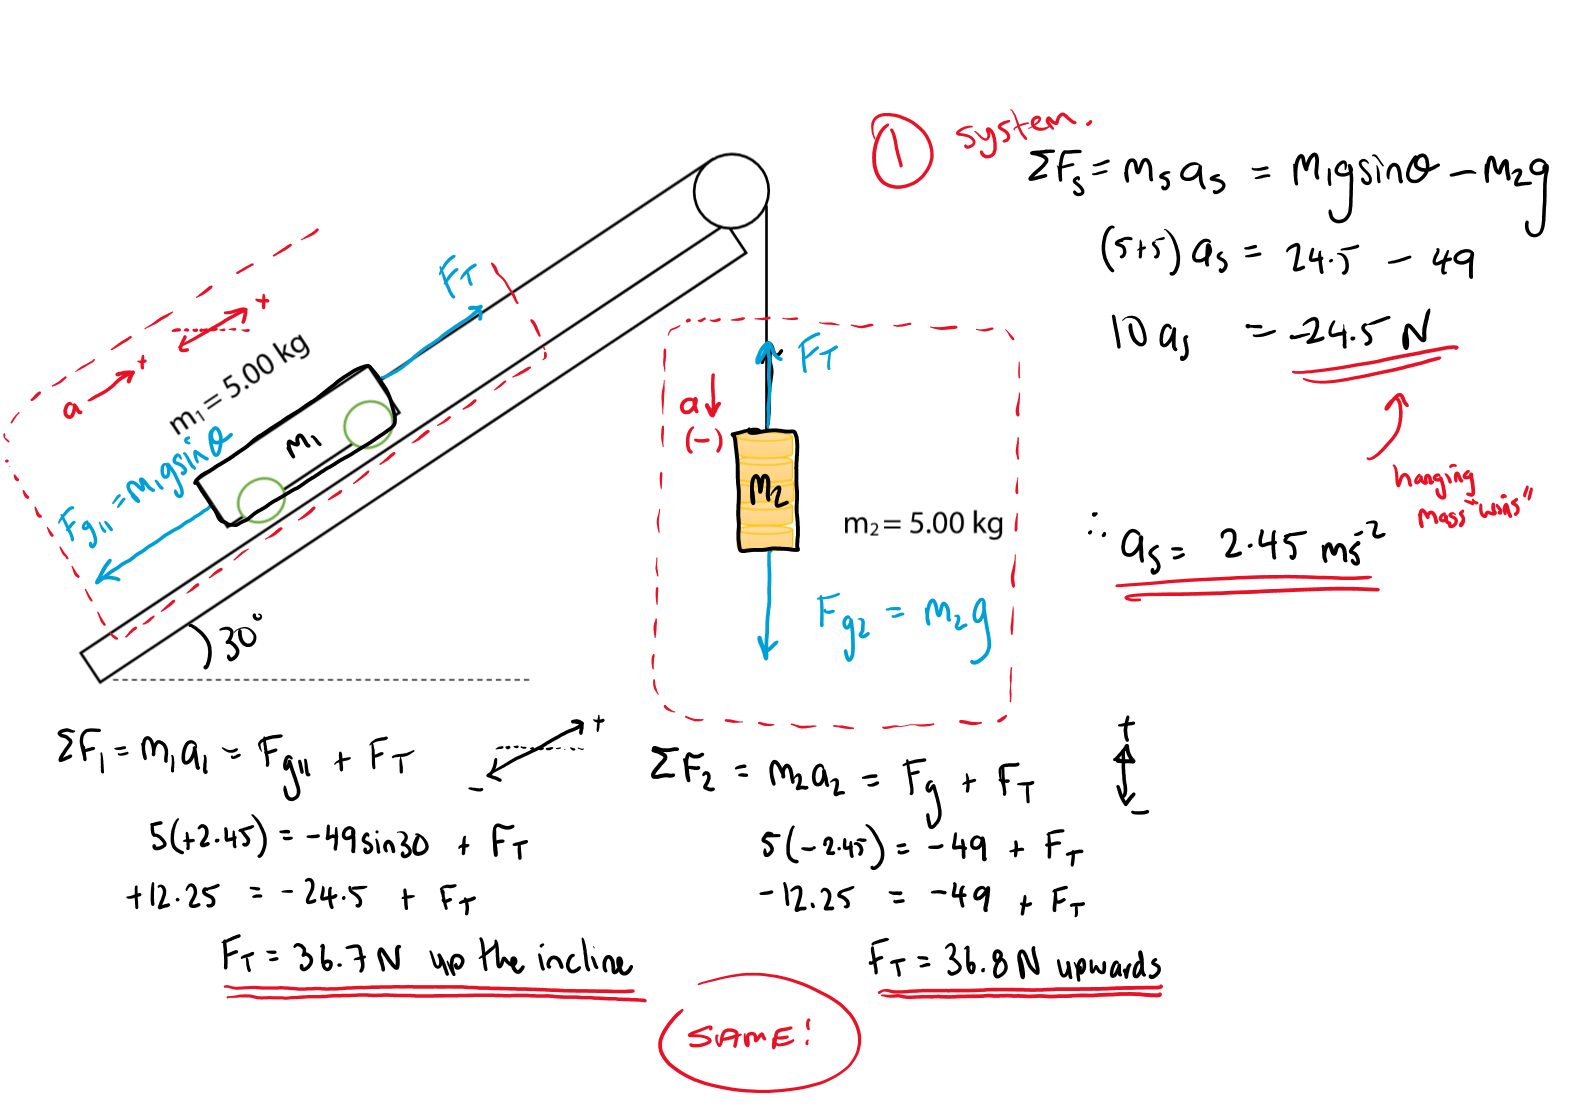 ① system.
ΣFₛ = mₛaₛ = m₁gsinθ – m₂g
(5+5) aₛ = 24.5 – 49
10 aₛ = -24.5 N
hanging
mass "wins"
∴ aₛ = 2.45 ms⁻²
+
a +
m₁ = 5.00 kg
F_T
m₁
F_g∥ = m₁gsinθ
30°
F_T
a↓
(-)
m₂
m₂ = 5.00 kg
F_g2 = m₂g
ΣF₁ = m₁a₁ = F_g∥ + F_T
+
-
5(+2.45) = -49sin30 + F_T
+12.25 = -24.5 + F_T
F_T = 36.7 N up the incline
ΣF₂ = m₂a₂ = F_g + F_T
+
-
5(-2.45) = -49 + F_T
-12.25 = -49 + F_T
F_T = 36.8 N upwards
SAME!